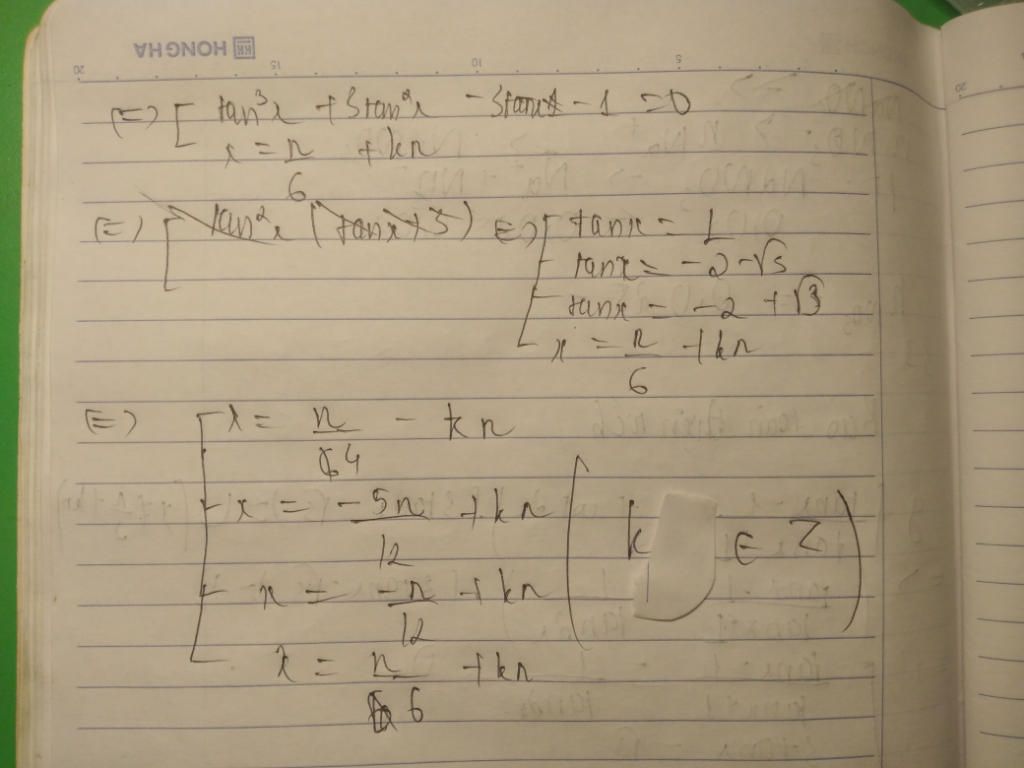 HONGHA
20 15 10 5 20
<=> [ tan³x + 3tan²x - 3tanx - 1 = 0
x = π/6 + kπ
<=> [ tan²x (tanx+3) <=> [ tanx = 1
tanx = -2-√3
tanx = -2+√3
x = π/6 + kπ
<=> [ x = π/4 - kπ
x = -5π/12 + kπ ( k ∈ Z )
x = -π/12 + kπ
x = π/6 + kπ